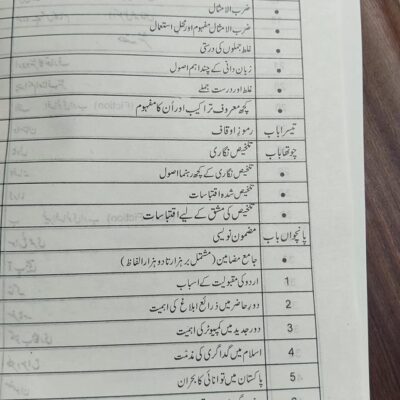 ضرب الامثال
ضرب الامثال مفہوم اور محل استعمال
غلط جملوں کی درستی
زبان دانی کے چند اہم اصول
غلط اور درست جملے
کچھ معروف تراکیب اور اُن کا مفہوم
تیسرا باب رموزِ اوقاف
چوتھا باب تلخیص نگاری
تلخیص نگاری کے کچھ رہنما اصول
تلخیص شدہ اقتباسات
تلخیص کی مشق کے لیے اقتباسات
پانچواں باب مضمون نویسی
جامع مضامین (مشتمل بر ہزار تا دو ہزار الفاظ)
1 اردو کی مقبولیت کے اسباب
2 دورِ حاضر میں ذرائع ابلاغ کی اہمیت
3 دورِ جدید میں کمپیوٹر کی اہمیت
4 اسلام میں گداگری کی مذمت
5 پاکستان میں توانائی کا بحران